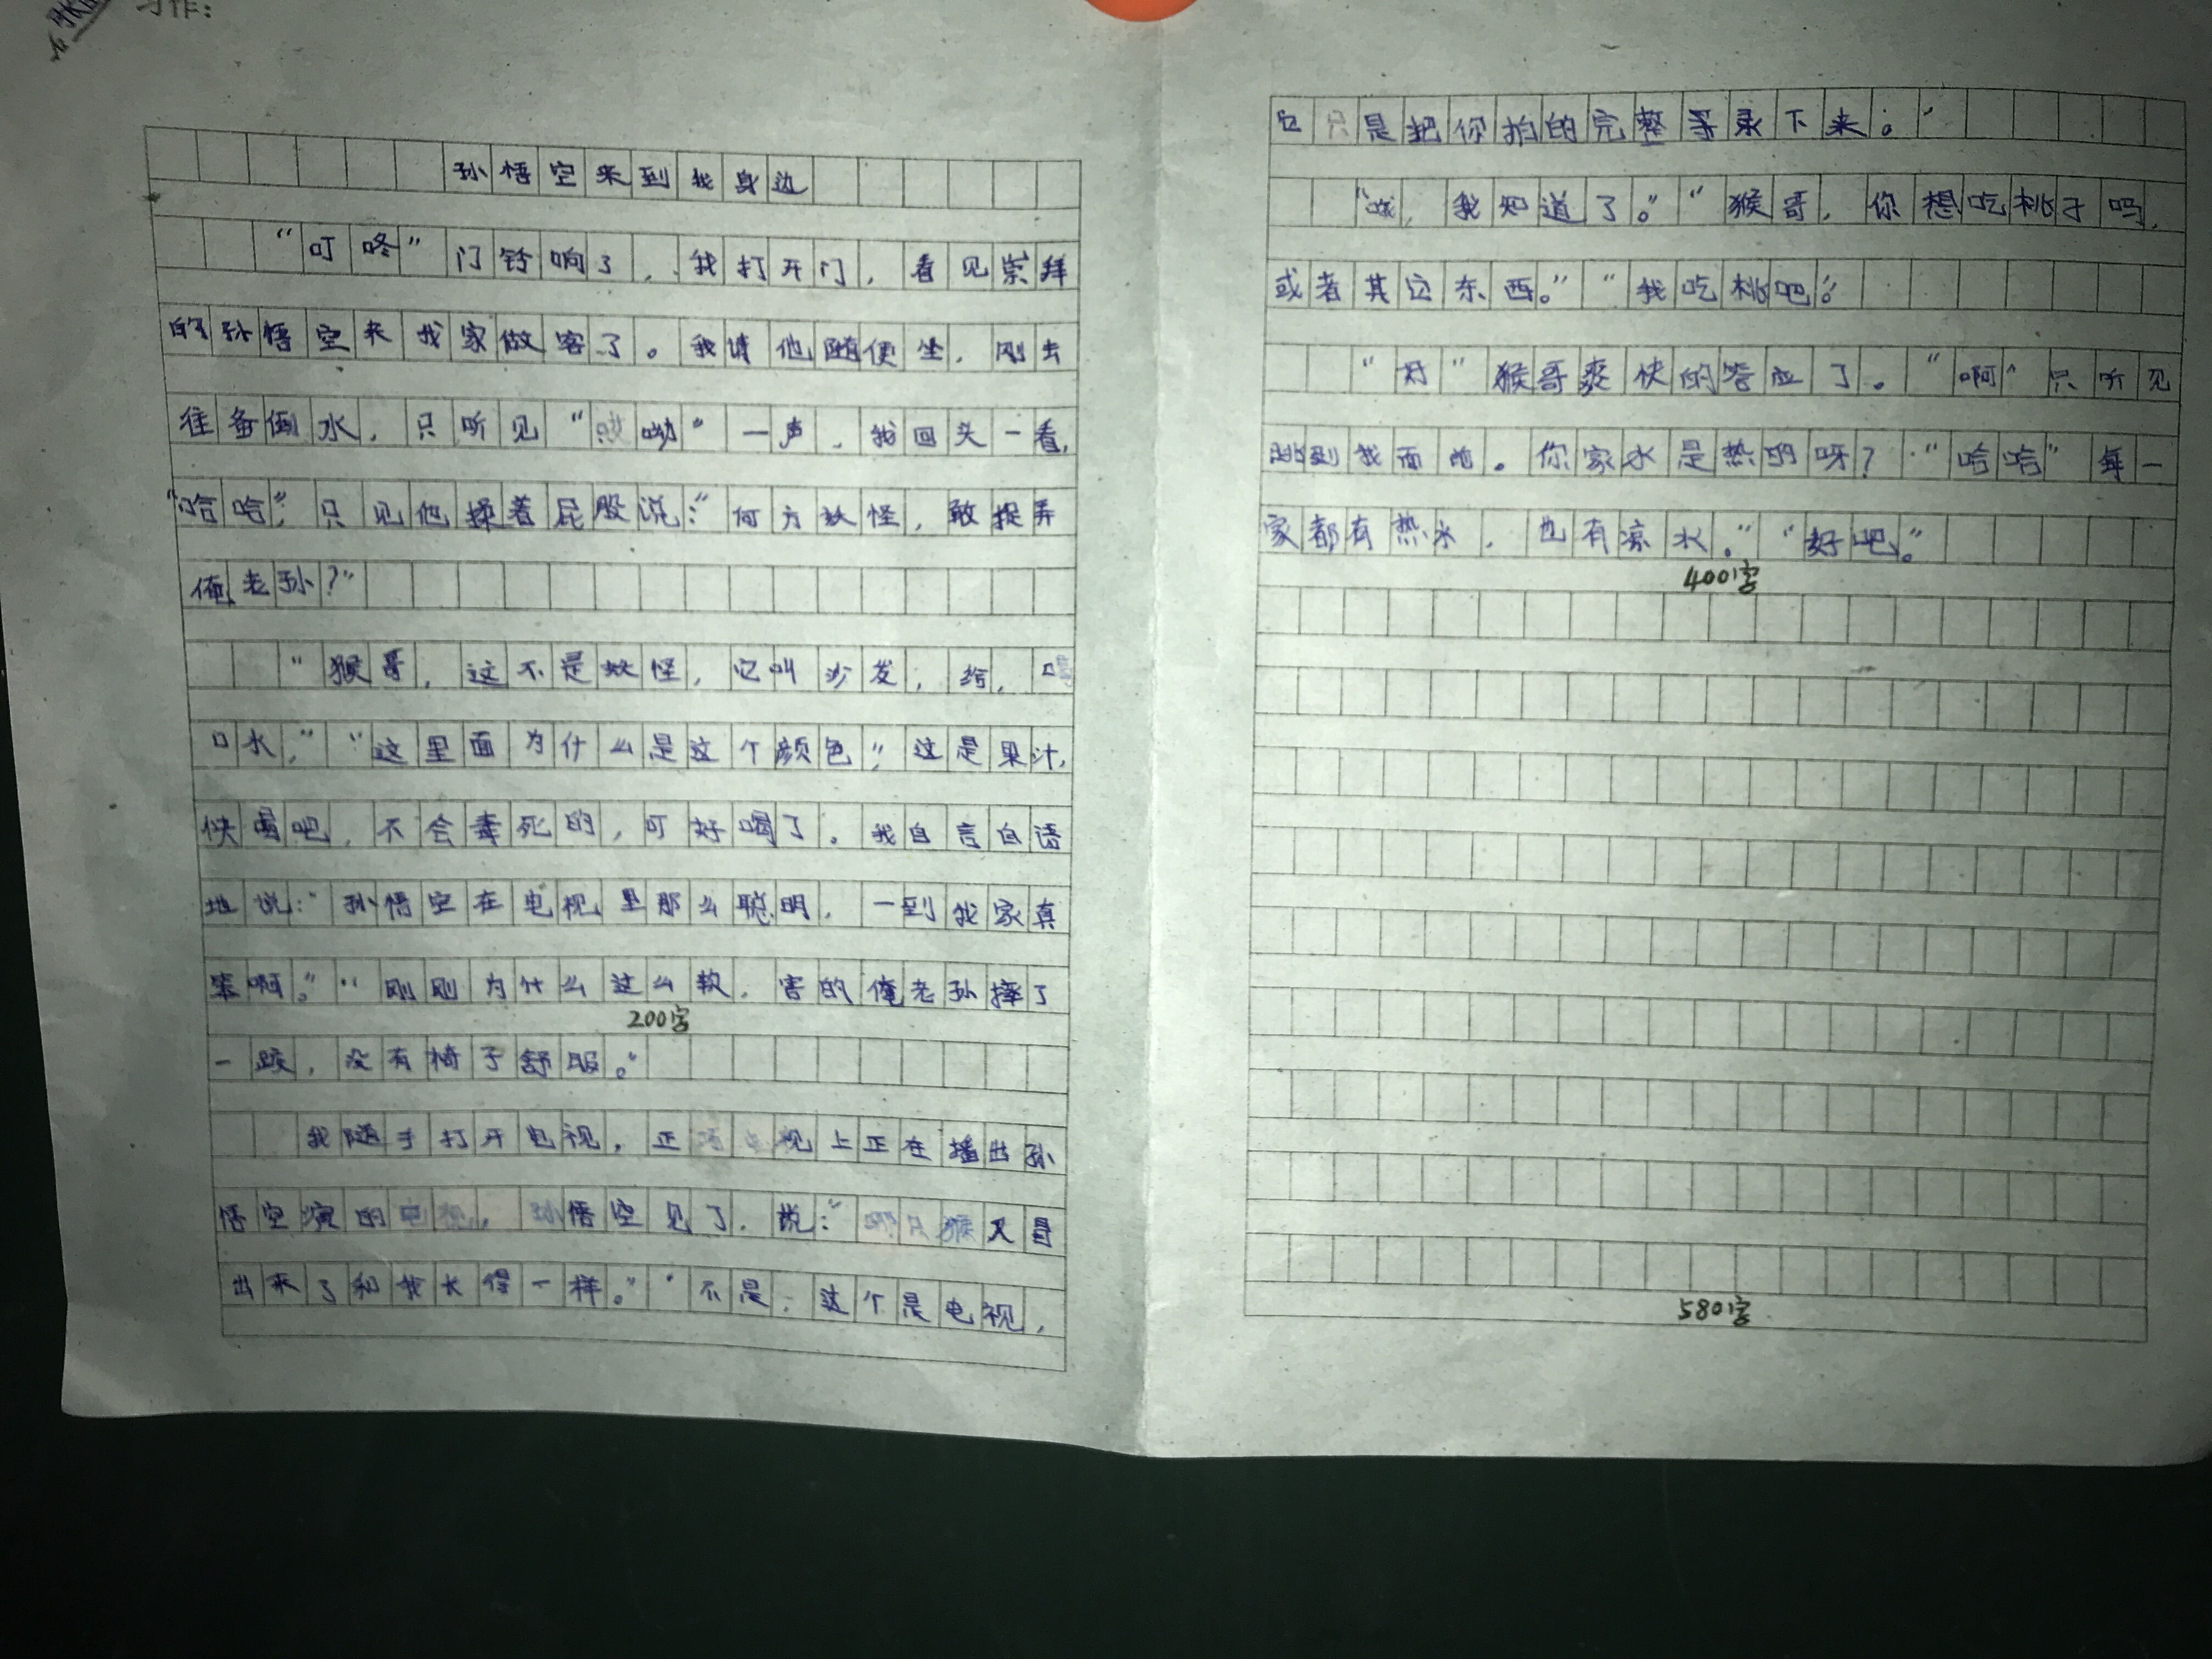 习作：
孙悟空来到我身边
“叮咚”门铃响了，我打开门，看见崇拜
的孙悟空来我家做客了。我请他随便坐，刚去
准备倒水，只听见“哎呦”一声，我回头一看，
“哈哈”只见他揉着屁股说：“何方妖怪，敢捉弄
俺老孙？”
“猴哥，这不是妖怪，它叫沙发，给，喝
口水，”“这里面为什么是这个颜色”，这是果汁，
快喝吧，不会毒死的，可好喝了。我自言自语
地说：“孙悟空在电视里那么聪明，一到我家真
笨啊。”“刚刚为什么这么软，害的俺老孙摔了
200字
一跤，没有椅子舒服。”
我随手打开电视，正 视上正在播出孙
悟空演的电视，孙悟空见了，说：“哪只猴又冒
出来了和我长得一样。”“不是，这个是电视，
它只是把你拍的完整 录下来。”
“ ，我知道了。”“猴哥，你想吃桃子吗，
或者其它东西。”“我吃桃吧”
“好”猴哥爽快的答应了。“啊”只听见
跳到我面前。你家水是热的呀？“哈哈”每一
家都有热水，也有凉水。”“好吧。”
400字
580字